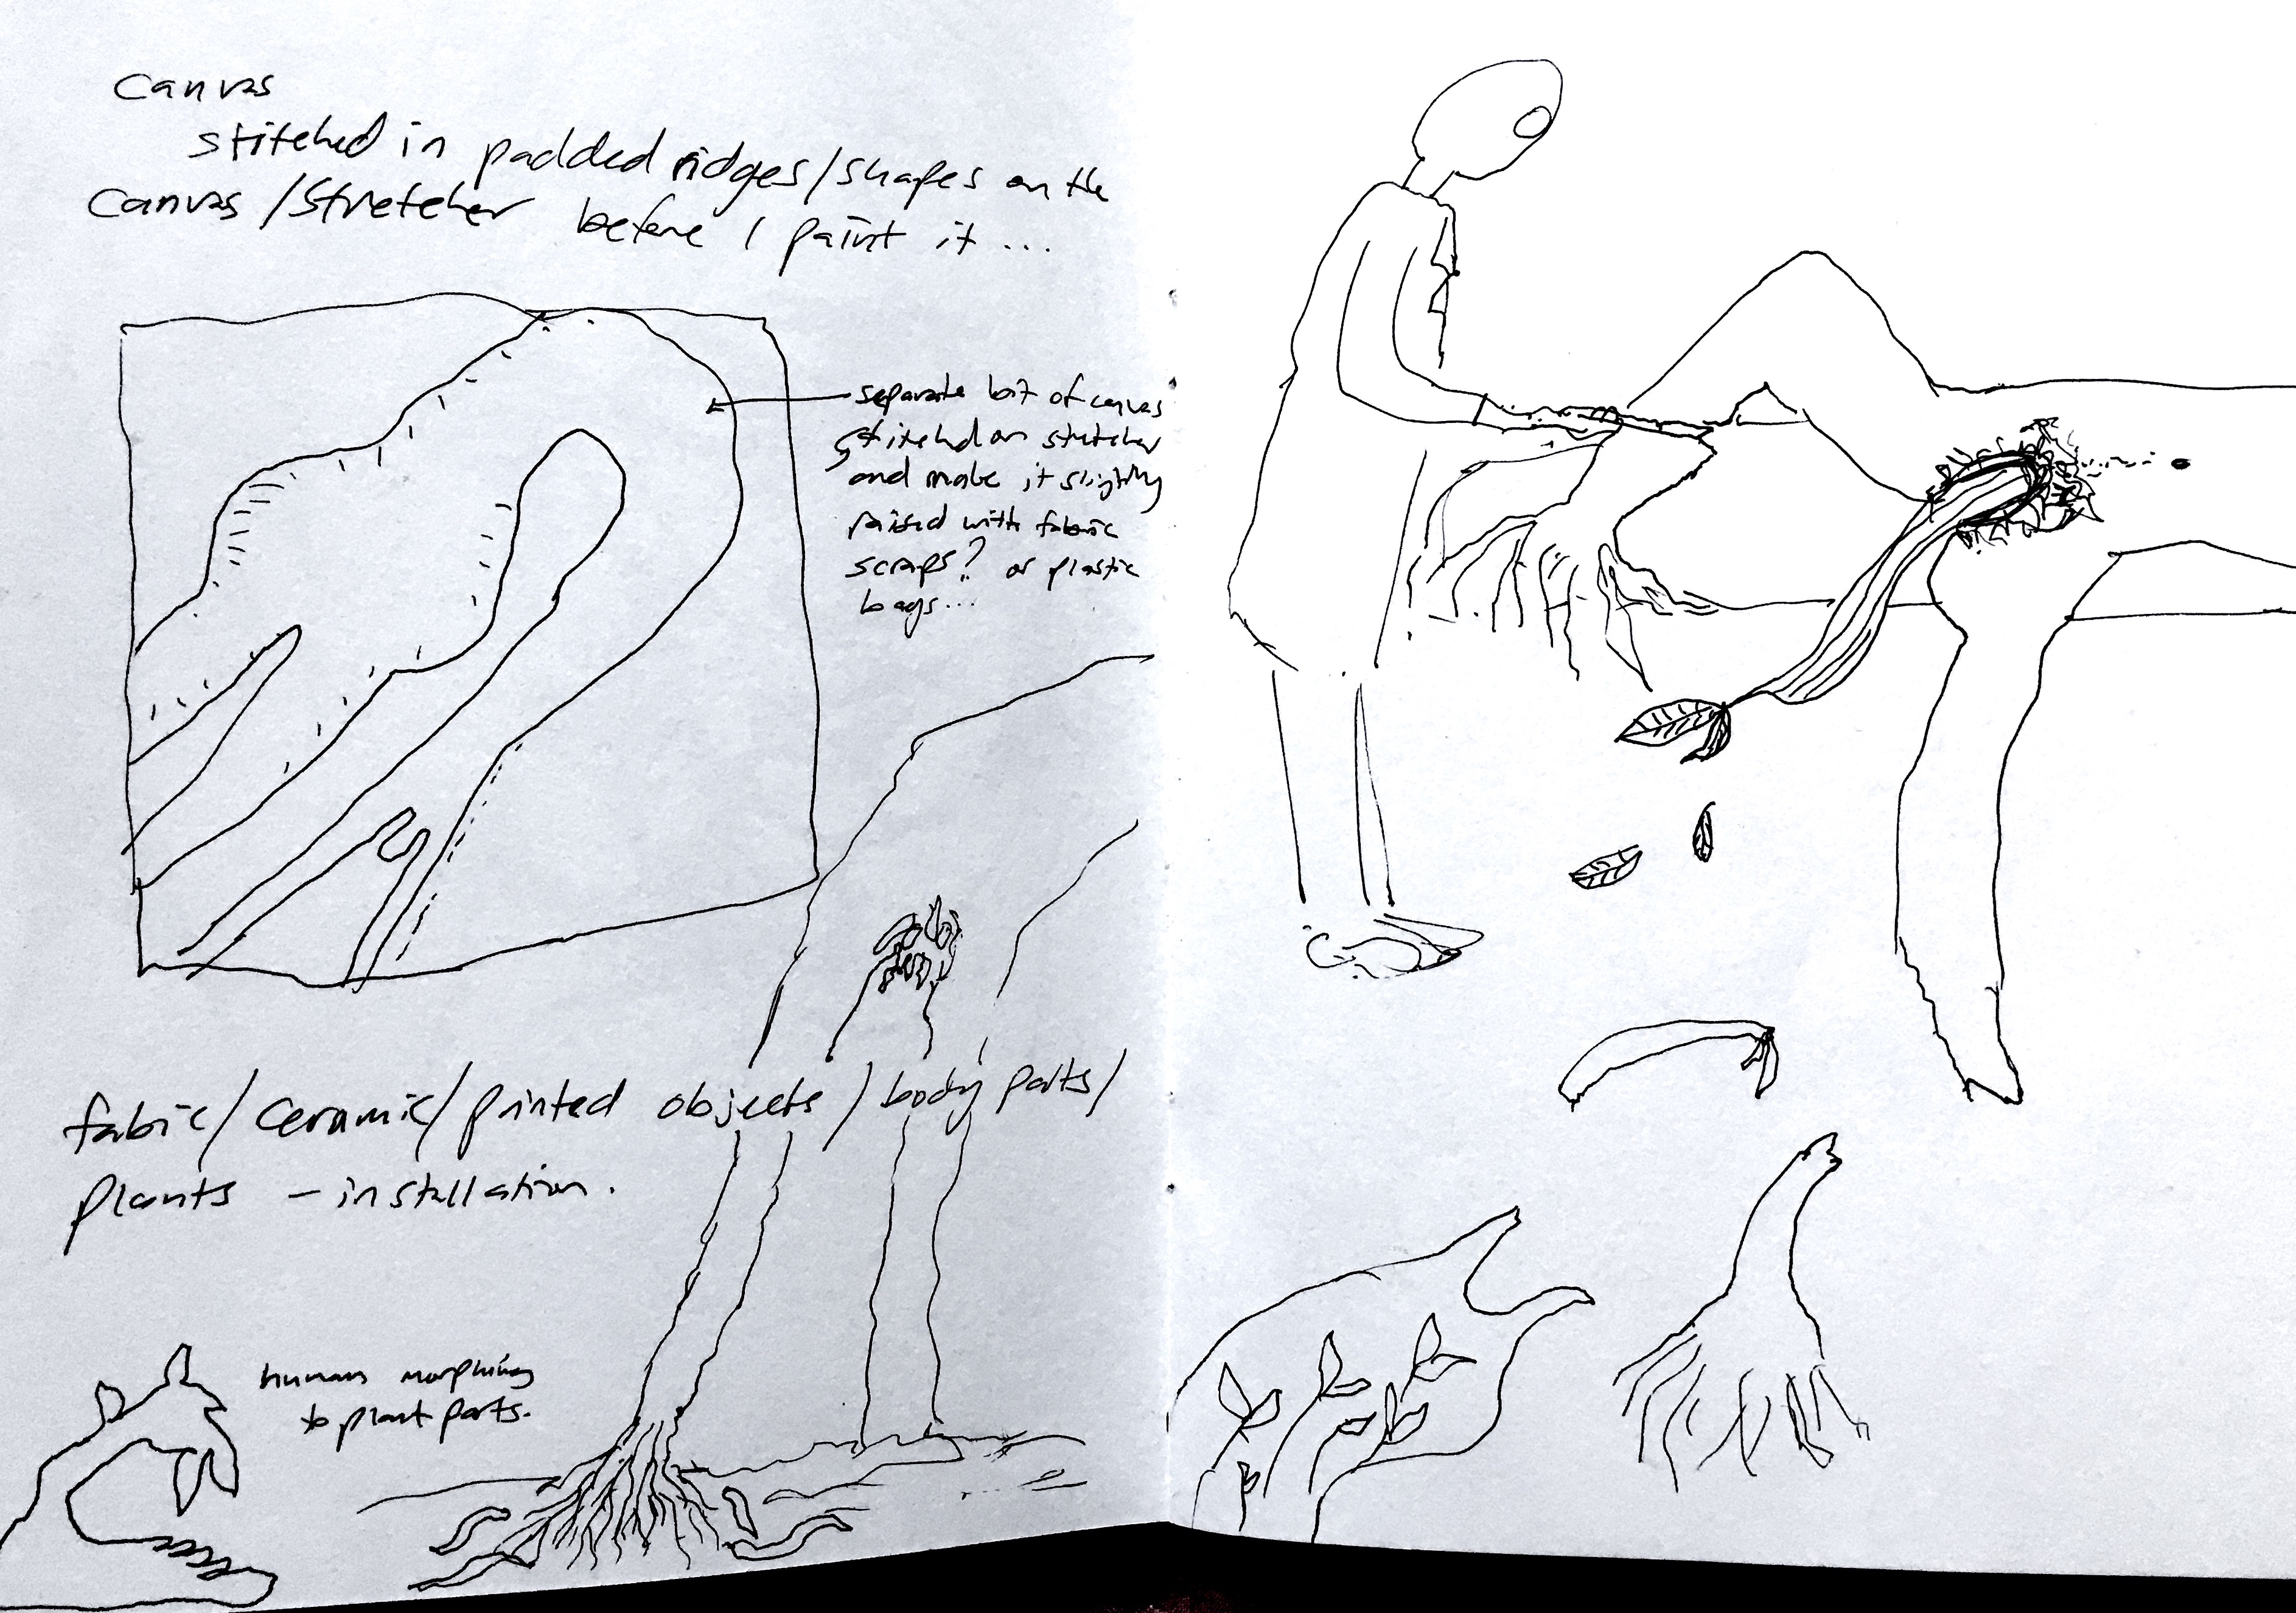 Canvas
stitched in padded ridges/shapes on the
Canvas/Stretcher before I paint it ...
separate bit of canvas
stitched on stretcher
and make it slightly
raised with fabric
scraps? or plastic
bags...
fabric/ceramic/printed objects/body parts/
plants - installation.
human morphing
to plant parts.